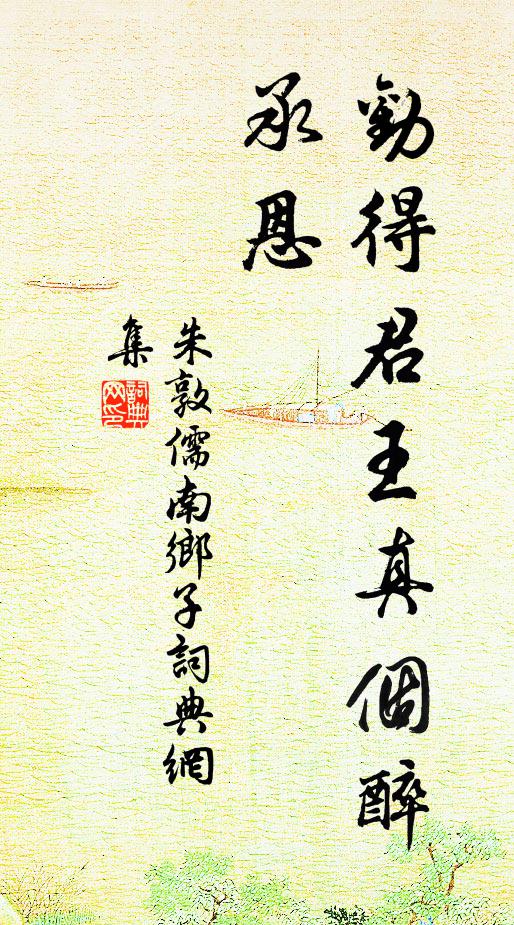 勸得君王真個醉
承恩
朱敦儒南鄉子詞典網
集
詞典
网印